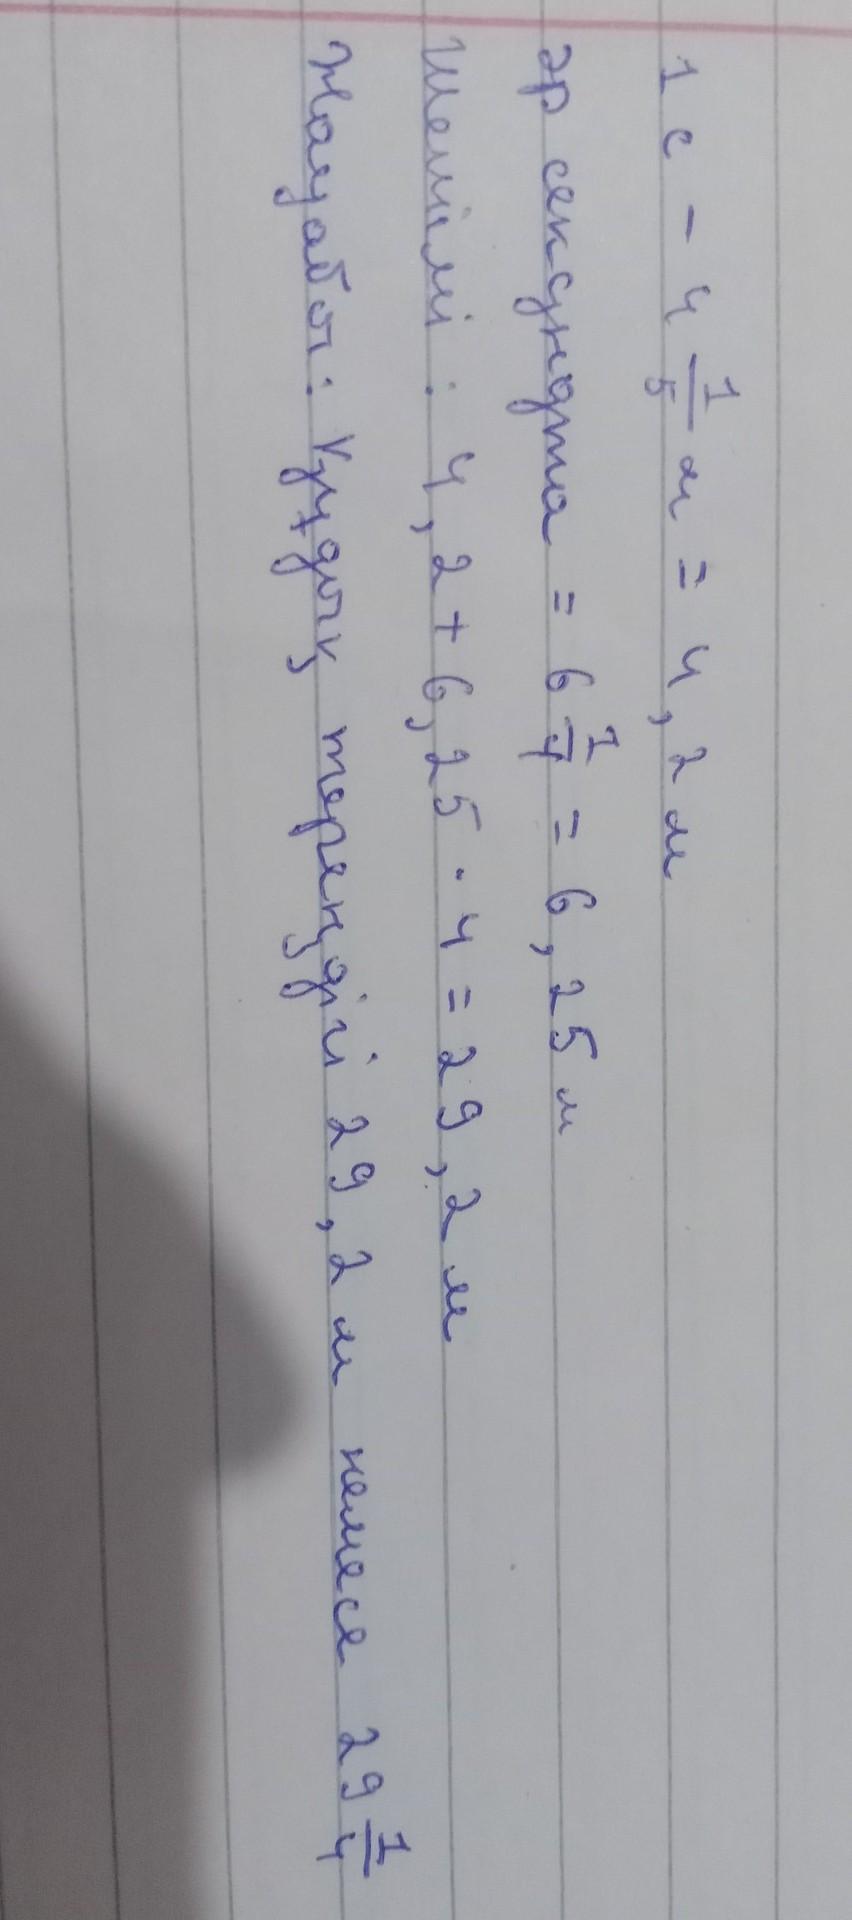 1 с - 4 1/5 м = 4,2 м
әр секундта = 6 1/4 = 6,25 м
Шешімі : 4,2 + 6,25 · 4 = 29,2 м
Жауабы : Құдық тереңдігі 29,2 м немесе 29 1/4